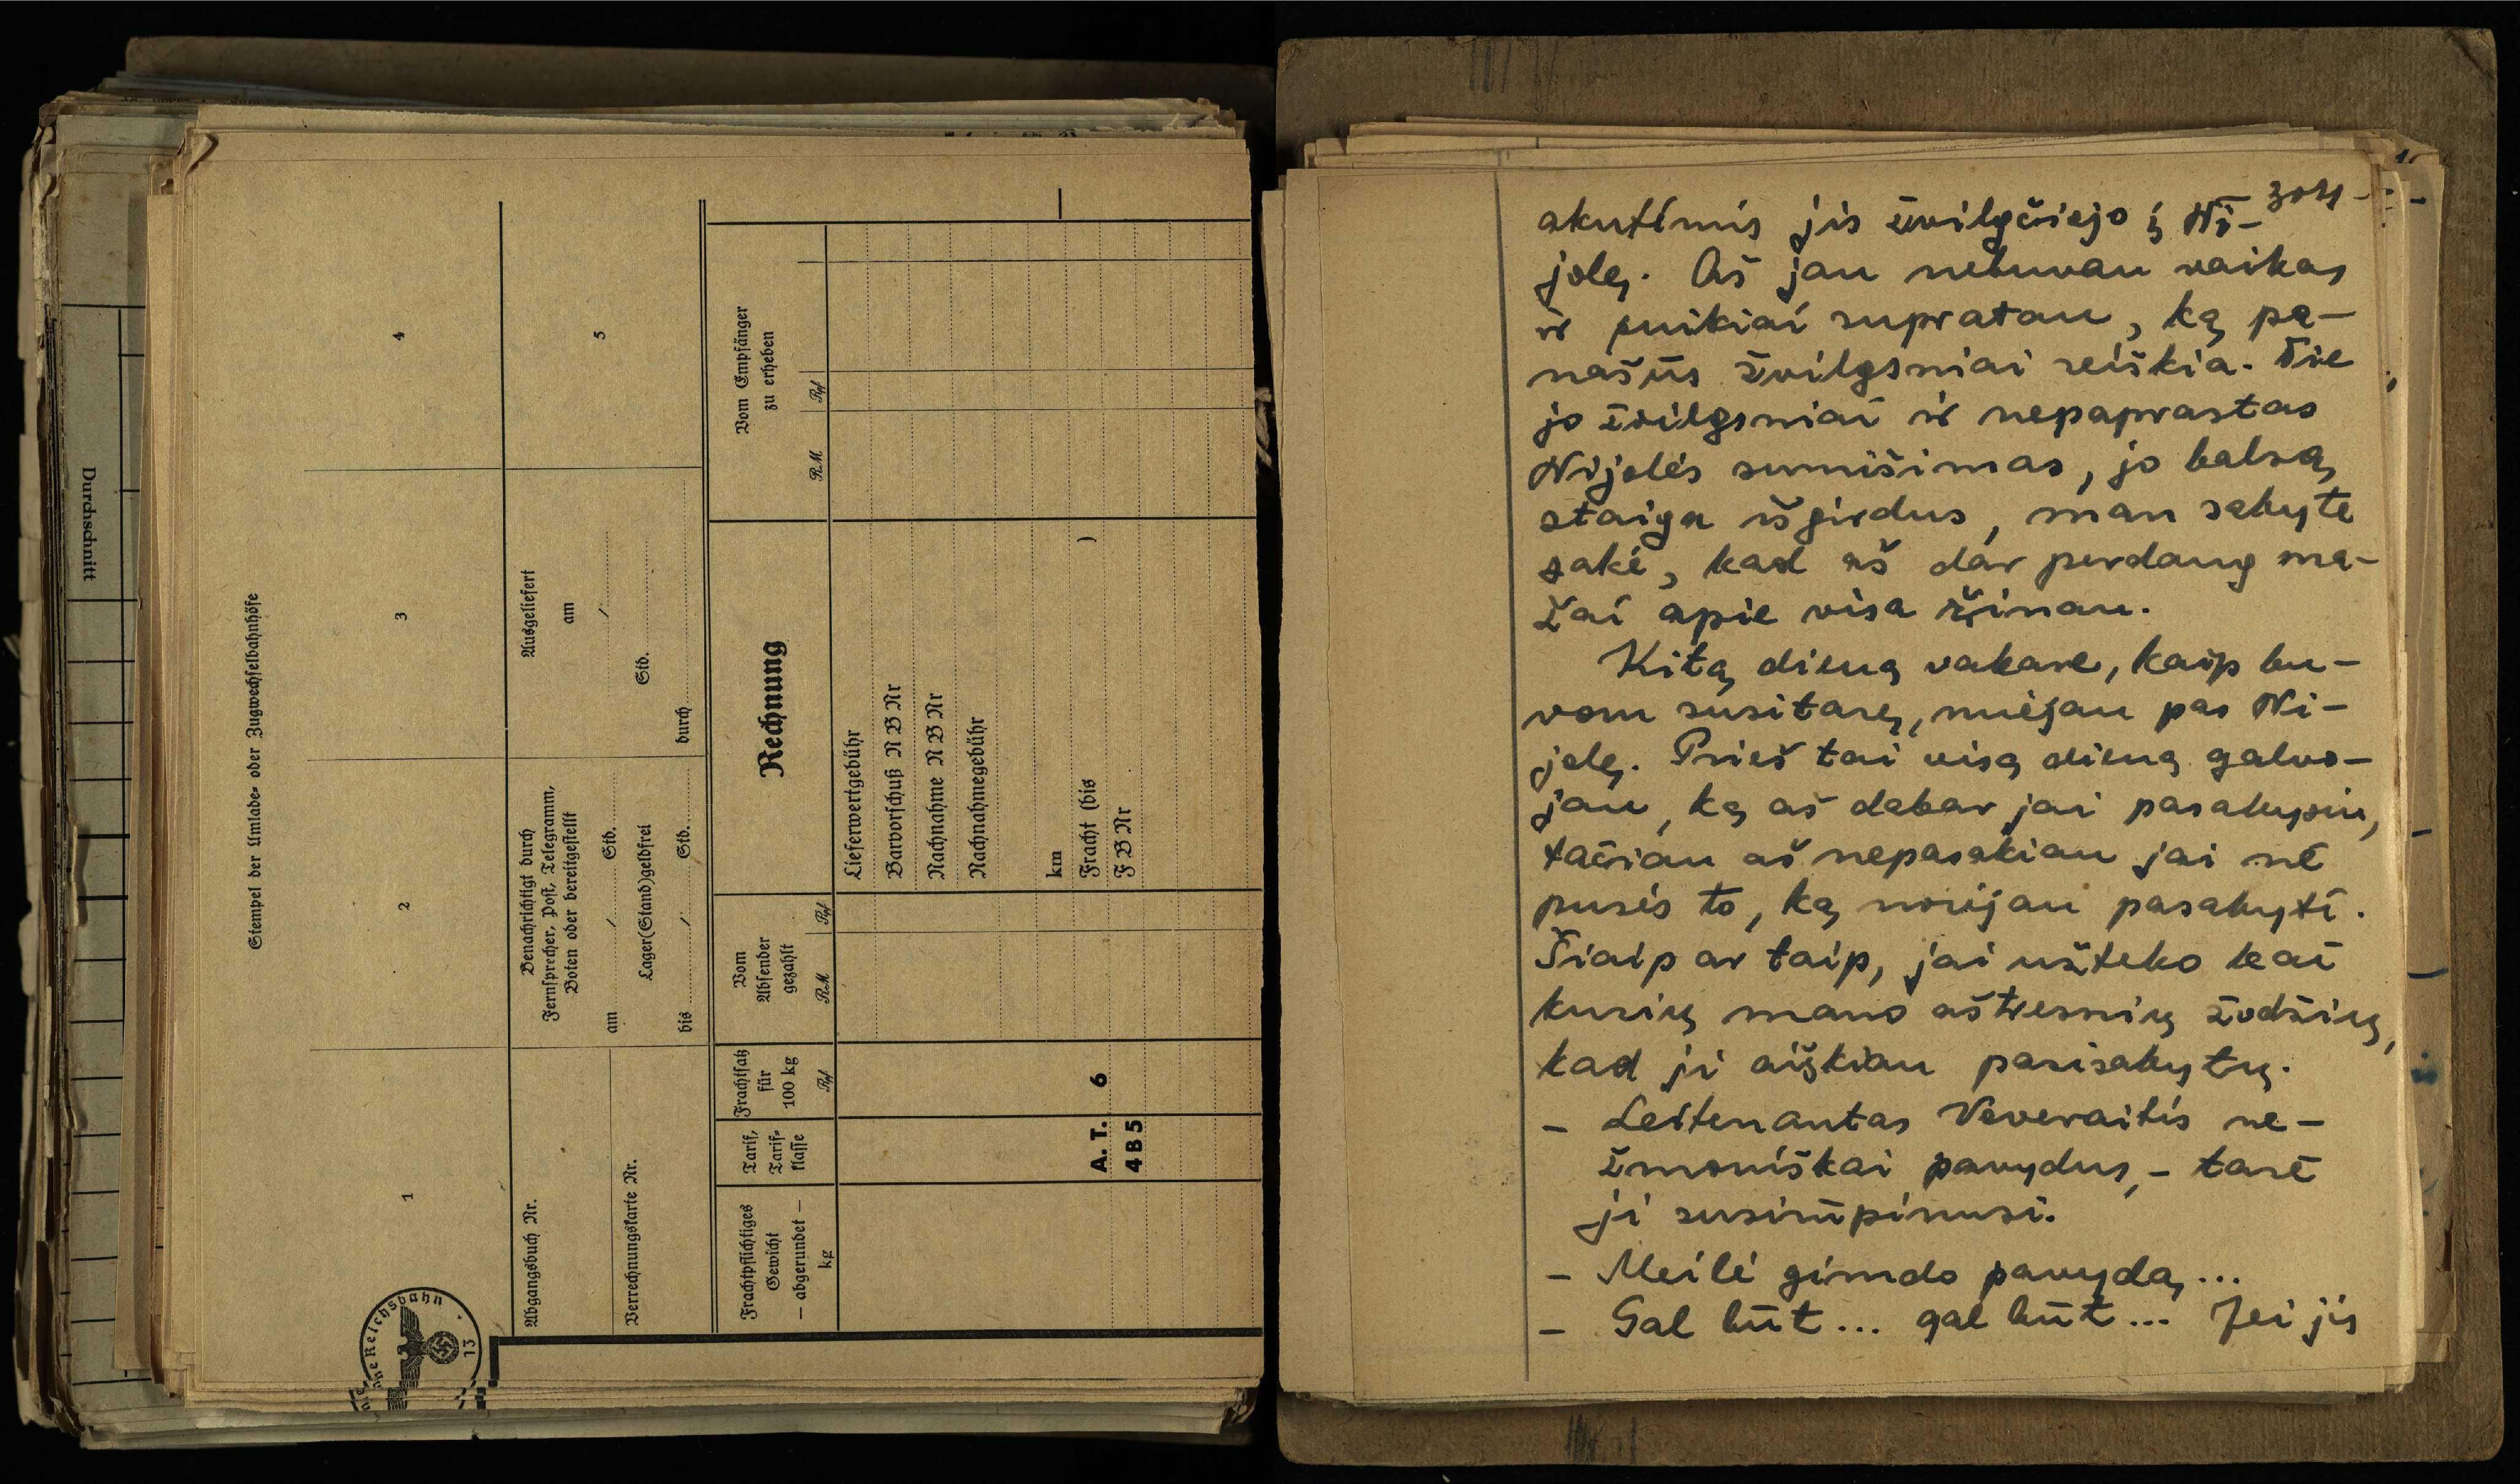 Durchschnitt
Stempel der Umlade- oder Zugwechselbahnhöfe
1
2
3
4
Abgangsbuch Nr.
Verrechnungskarte Nr.
Benachrichtigt durch
Fernsprecher, Post, Telegramm,
Boten oder bereitgestellt
am / Std.
Lager(Stand)geldfrei
bis / Std.
Ausgeliefert
am
/
Std.
durch
5
Frachtpflichtiges
Gewicht
— abgerundet —
kg
Tarif,
Tarif-
klasse
Frachtsatz
für
100 kg
Rpf
Vom
Absender
gezahlt
RM Rpf
Rechnung
Vom Empfänger
zu erheben
RM Rpf
Lieferwertgebühr
Barvorschuß N B Nr
Nachnahme N B Nr
Nachnahmegebühr
km
A. T. 6 Fracht (bis )
4 B 5 F B Nr
ne Reichsbahn
13
304
akutėmis jis žvilgčiojo į Ni-
jolę. Aš jau nebuvau vaikas
ir puikiai supratau, ką pa-
našūs žvilgsniai reiškia. Tie
jo žvilgsniai ir nepaprastas
Nijolės sumišimas, jo balsą
staiga išgirdus, man sakyte
sakė, kad aš dar perdaug ma-
žai apie visa žinau.
Kitą dieną vakare, kaip bu-
vom susitarę, nuėjau pas Ni-
jolę. Prieš tai visą dieną galvo-
jau, ką aš dabar jai pasakysiu,
tačiau aš nepasakiau jai nė
pusės to, ką norėjau pasakyti.
Šiaip ar taip, jai užteko kai
kurių mano aštresnių žodžių,
kad ji aiškiau pasisakytų.
– Leitenantas Veveraitis ne-
žmoniškai pavydus, – tarė
ji susirūpinusi.
– Meilė gimdo pavydą ...
– Gal būt ... gal būt ... Jei jis